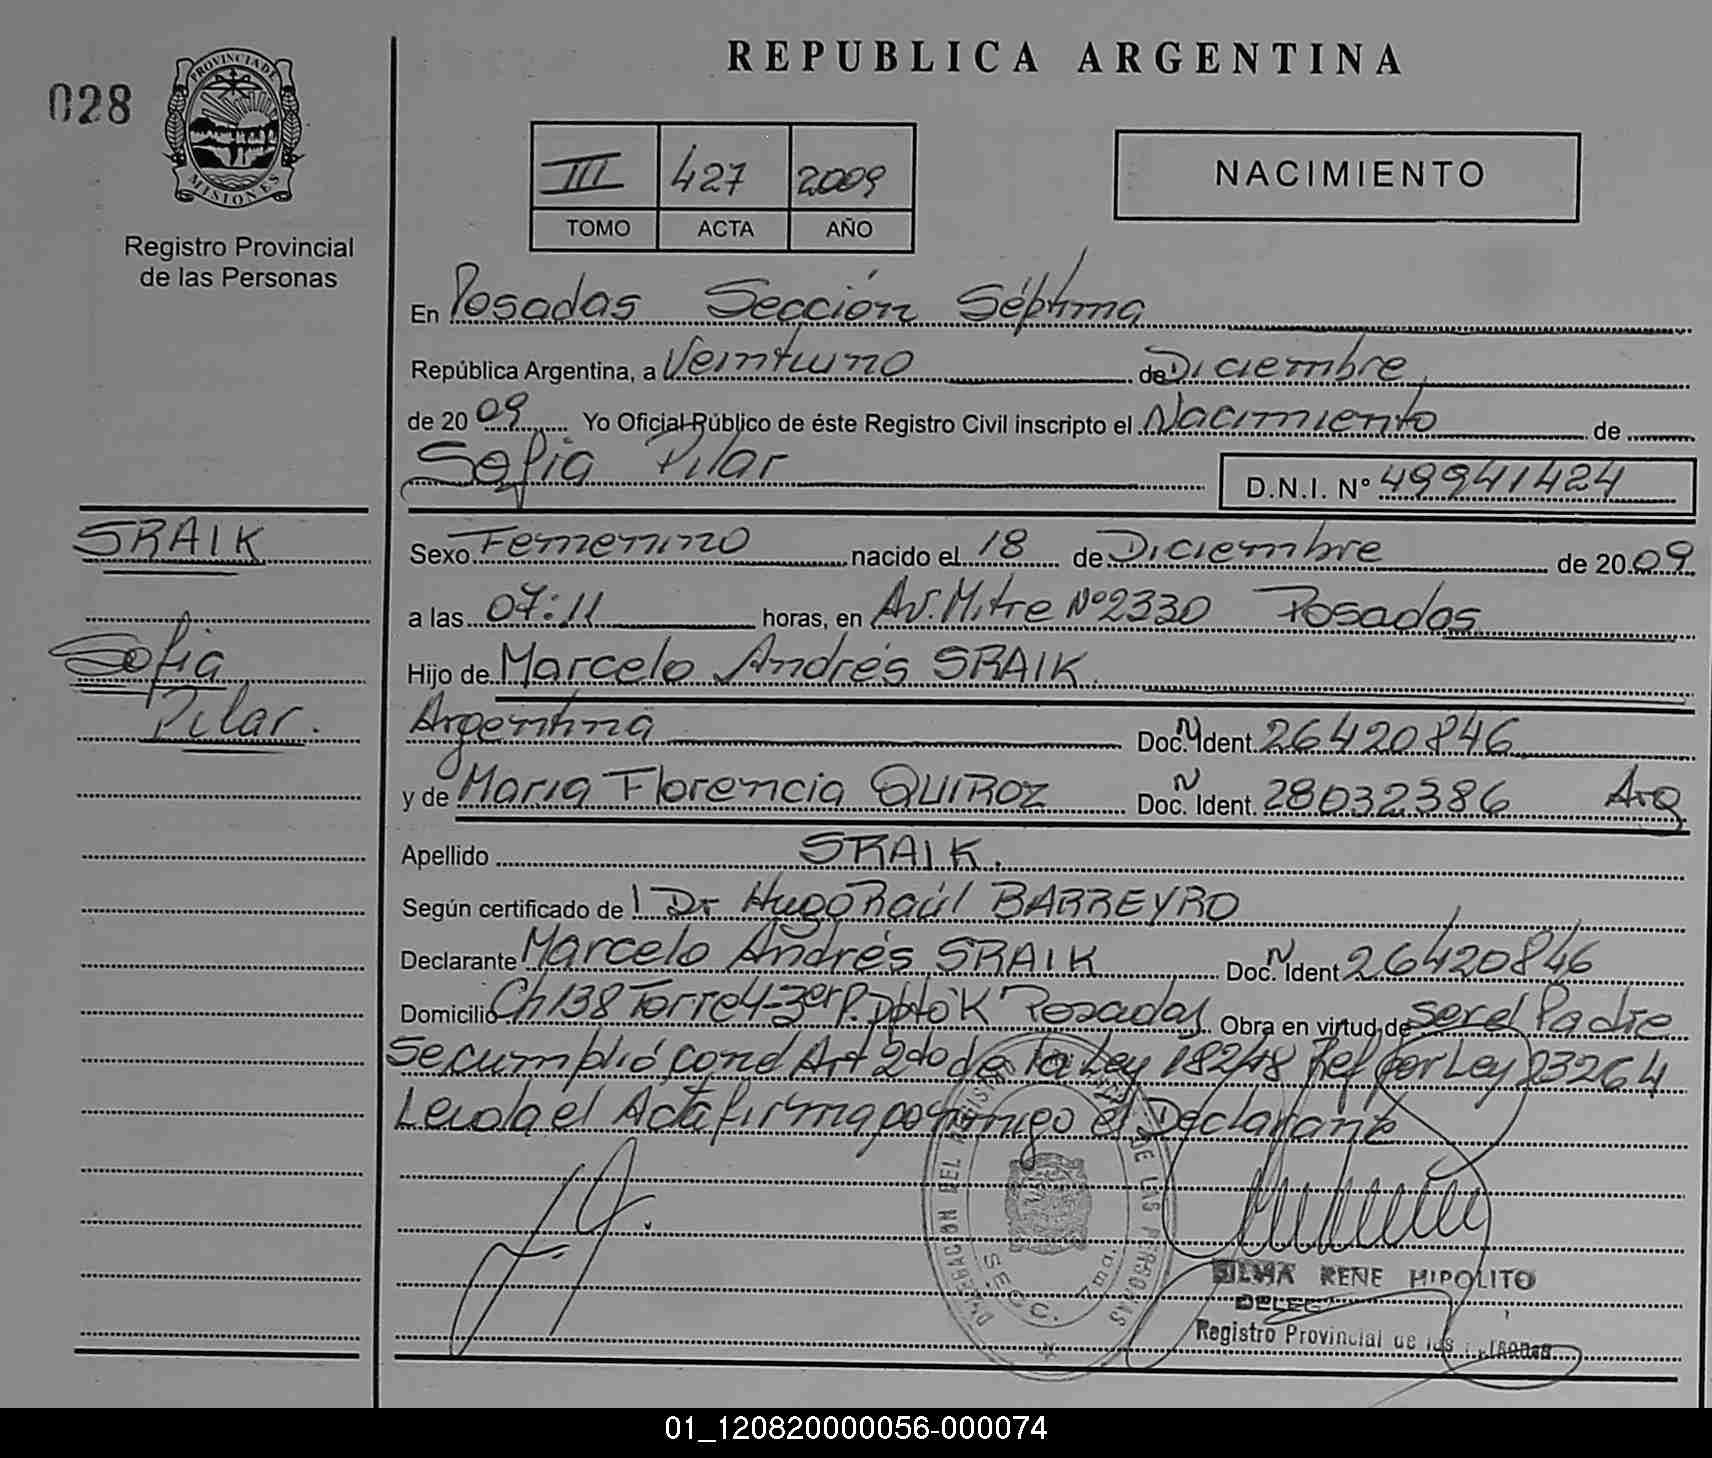 REPUBLICA ARGENTINA
028
PROVINCIA DE
MISIONES
Registro Provincial
de las Personas
III 427 2009
TOMO ACTA AÑO
NACIMIENTO
En Posadas Sección Séptima
República Argentina, a Veintiuno de Diciembre
de 2009 Yo Oficial Público de éste Registro Civil inscripto el Nacimiento de
Sofia Pilar D.N.I. Nº 49941424
SRAIK
Sofia
Pilar.
Sexo Femenino nacido el 18 de Diciembre de 2009
a las 07:11 horas, en Av. Mitre Nº 2330 Posadas
Hijo de Marcelo Andrés SRAIK.
Argentina Doc. N Ident. 26420846
y de Maria Florencia QUIROZ Doc. N Ident. 28032386 Arg
Apellido SRAIK.
Según certificado de l Dr Hugo Raúl BARREYRO
Declarante Marcelo Andrés SRAIK Doc. N Ident 26420846
Domicilio Ch 138 Torre 4-3er P. Dpto "K" Posadas Obra en virtud de ser el Padre
Se cumplió con el Art 2do de la Ley 18248 Ref por Ley 23264
Leida el Acta firma conmigo el Declarante
DELEGACION DEL REGISTRO DE LAS PERSONAS
SECC. 7ma.
RENE HIPOLITO
Registro Provincial de las
01_120820000056-000074